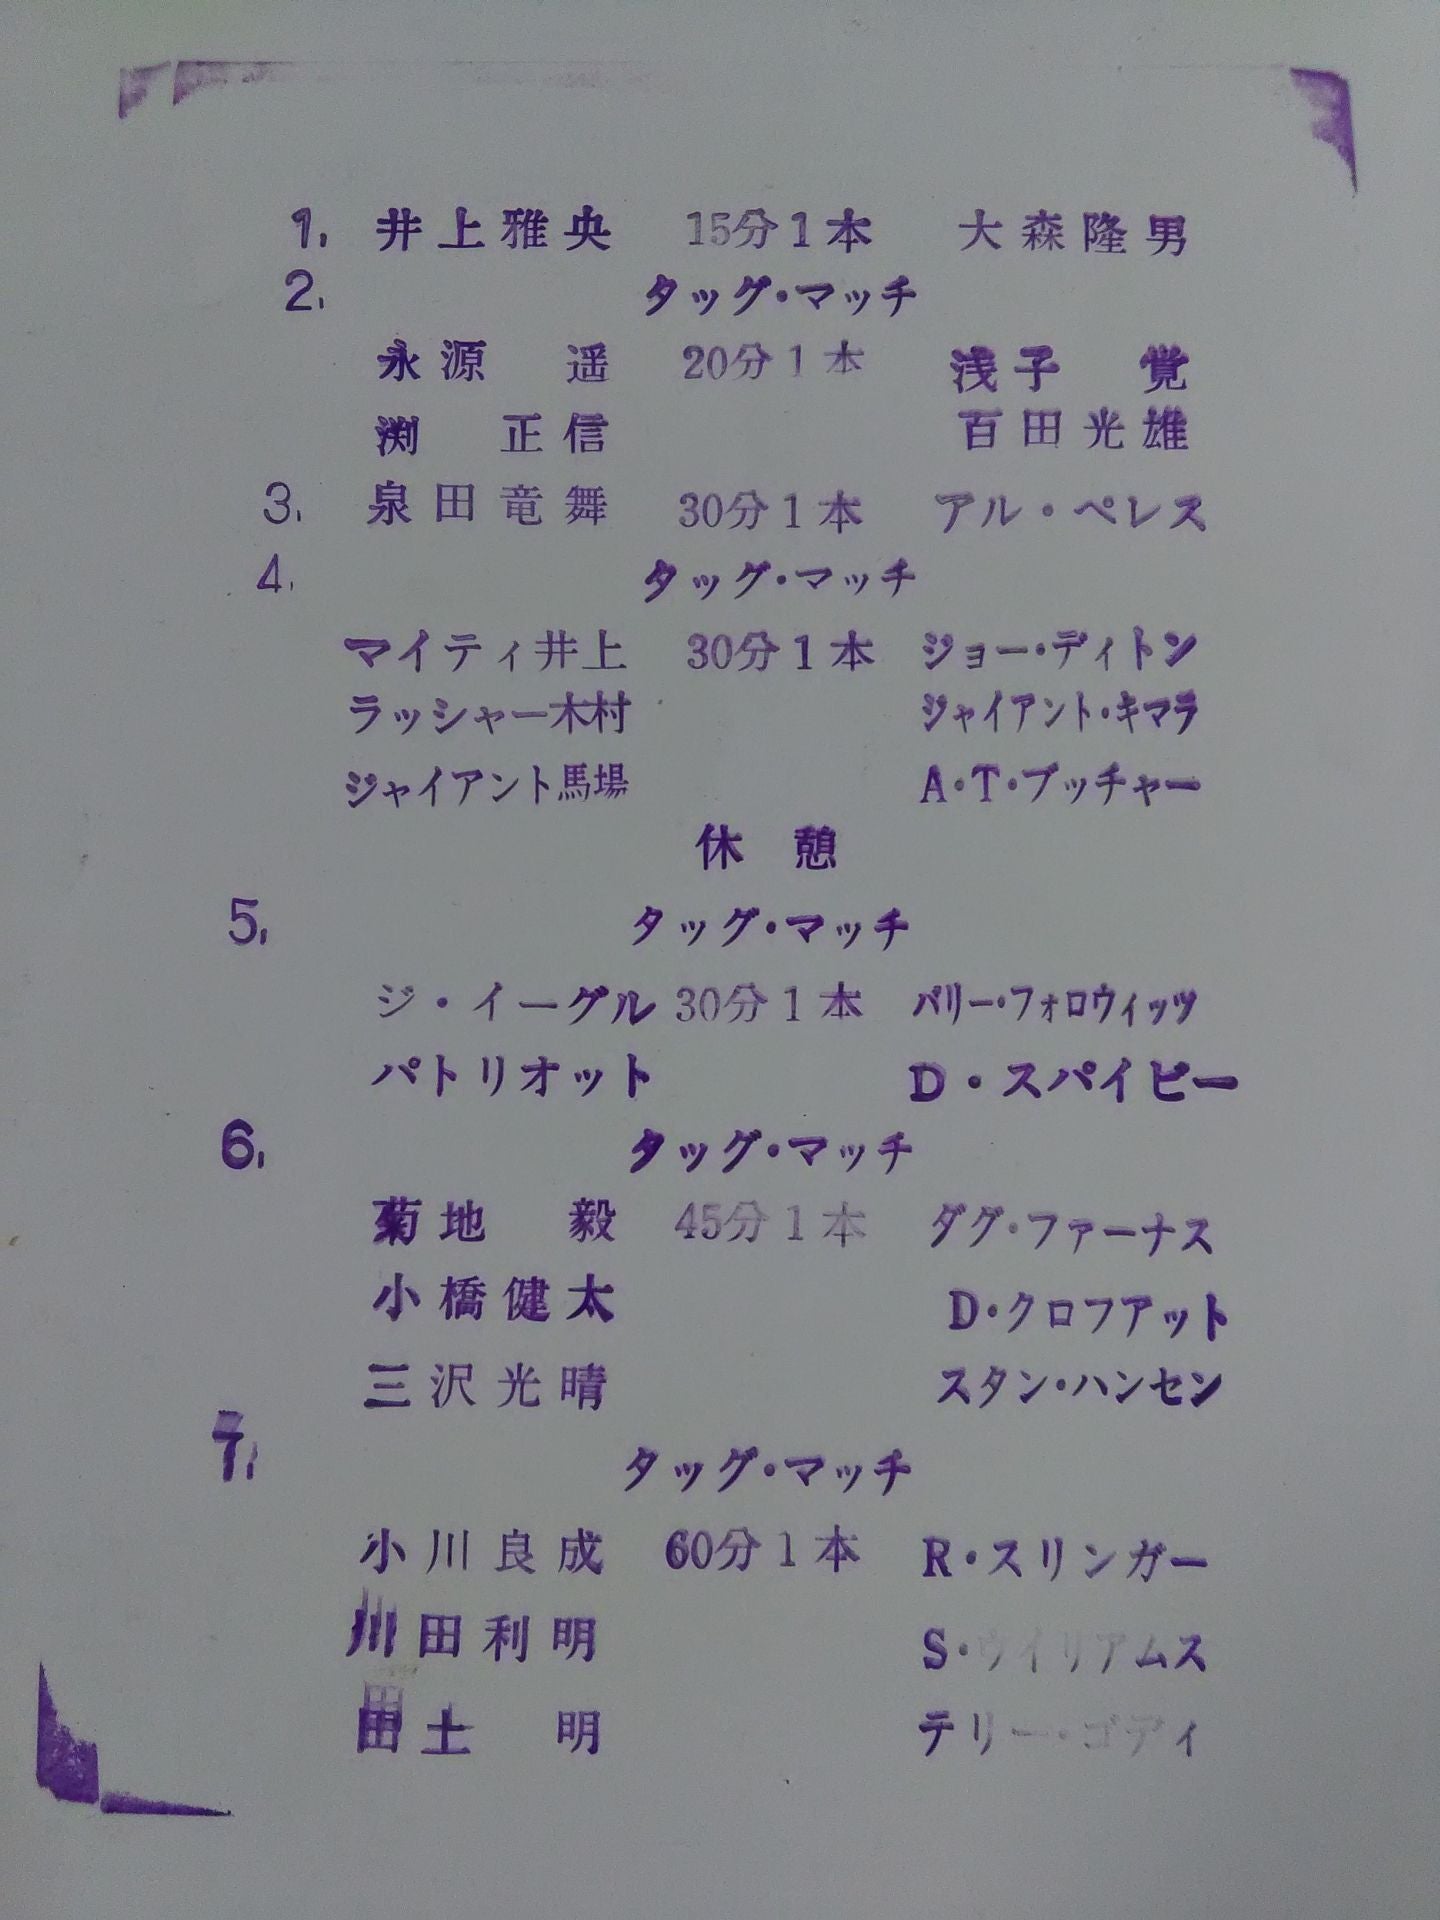 1. 井上雅央 15分1本 大森隆男
2. タッグ・マッチ
永源 遥 20分1本 浅子 覚
渕 正信 百田光雄
3. 泉田竜舞 30分1本 アル・ペレス
4. タッグ・マッチ
マイティ井上 30分1本 ジョー・ディトン
ラッシャー木村 ジャイアント・キマラ
ジャイアント馬場 A・T・ブッチャー
休憩
5. タッグ・マッチ
ジ・イーグル 30分1本 バリー・フォロウィッツ
パトリオット D・スパイビー
6. タッグ・マッチ
菊地 毅 45分1本 ダグ・ファーナス
小橋健太 D・クロフアット
三沢光晴 スタン・ハンセン
7. タッグ・マッチ
小川良成 60分1本 R・スリンガー
川田利明 S・ウイリアムス
田上 明 テリー・ゴディ